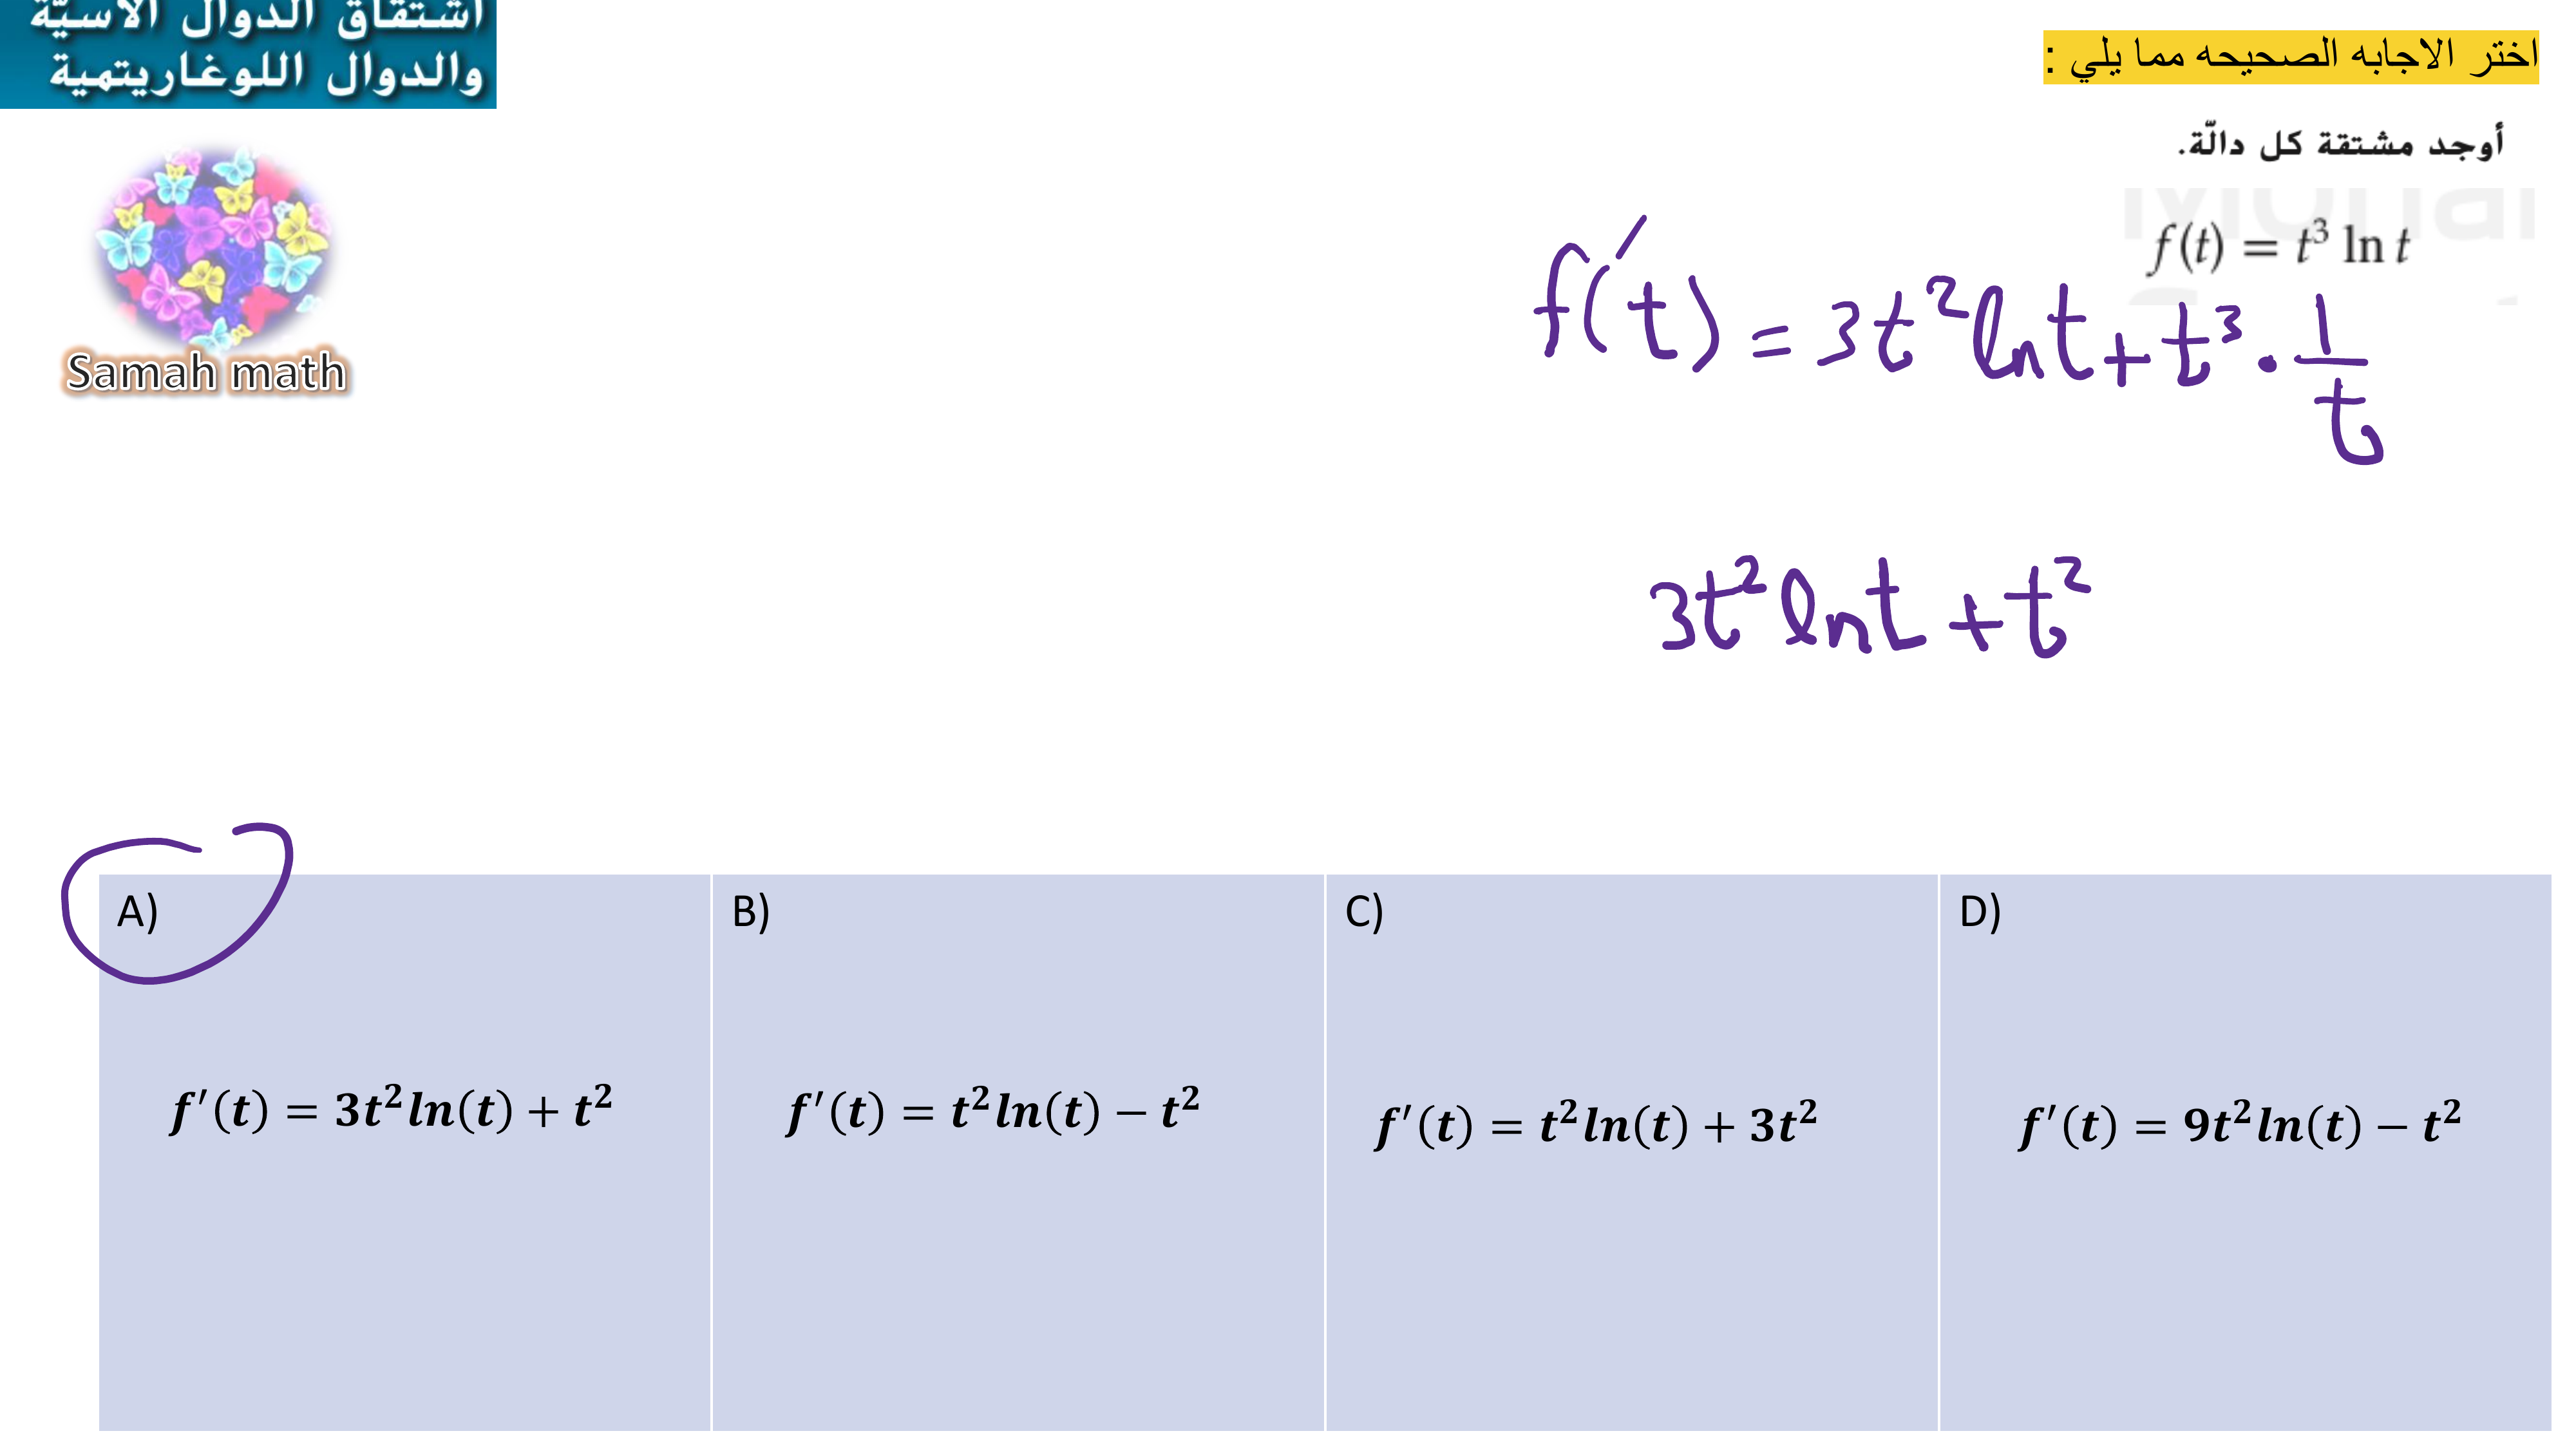 اشتقاق الدوال الأسيّة
والدوال اللوغاريتمية
اختر الاجابه الصحيحه مما يلي :
أوجد مشتقة كل دالّة.
f(t) = t³ ln t
Samah math
f'(t) = 3t² ln t + t³ · 1/t
3t² ln t + t²
A)
f′(t) = 3t²ln(t) + t²
B)
f′(t) = t²ln(t) − t²
C)
f′(t) = t²ln(t) + 3t²
D)
f′(t) = 9t²ln(t) − t²